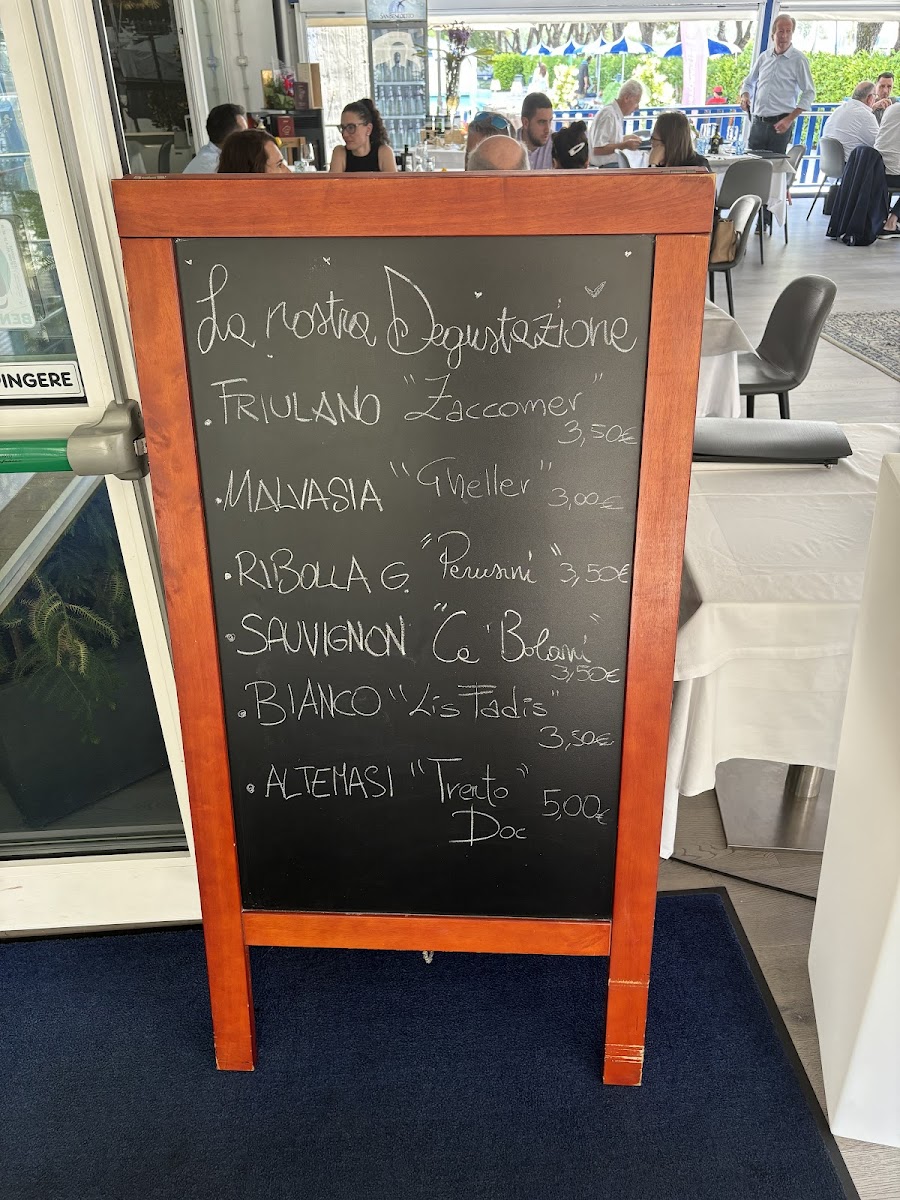 La nostra Degustazione
. FRIULANO "Zaccomer"
3,50€
. MALVASIA "Gheller" 3,00€
. RIBOLLA G. "Perusini" 3,50€
. SAUVIGNON "Ca Bolani"
3,50€
. BIANCO "Lis Fadis"
3,50€
. ALTEMASI "Trento"
Doc 5,00€
PINGERE
BEN